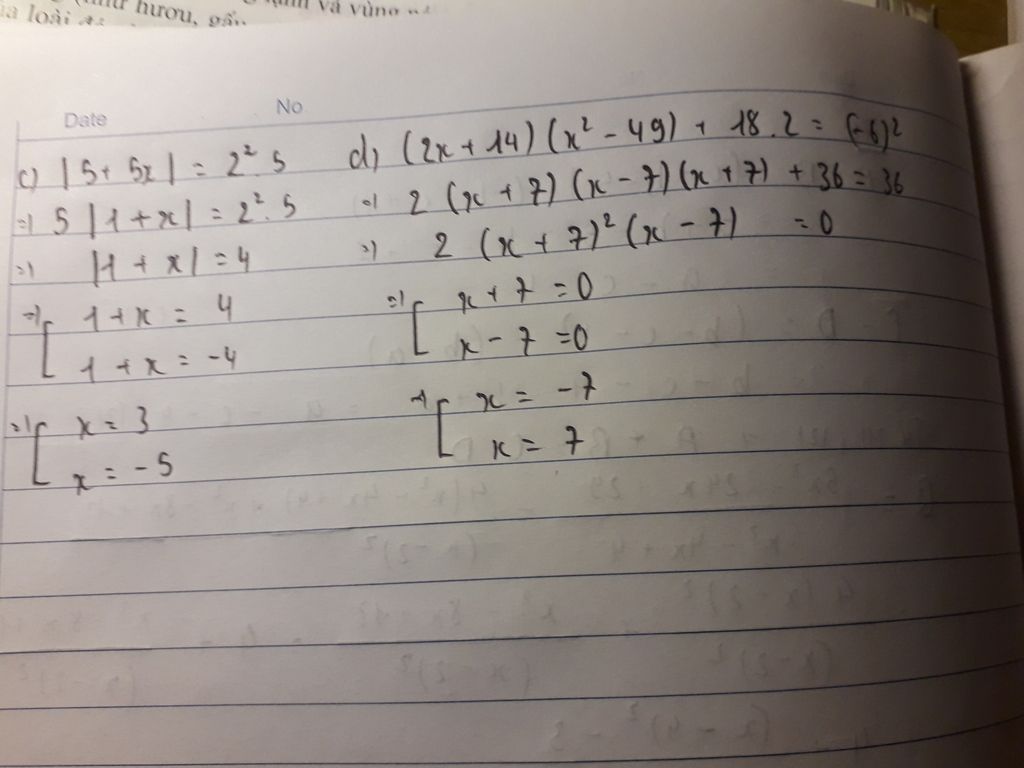 và vùng
loài
hươu, gấu
Date No
c) |5 + 5x| = 2² . 5
=) 5 |1 + x| = 2² . 5
=) |1 + x| = 4
=) [ 1 + x = 4
1 + x = -4
=) [ x = 3
x = -5
d) (2x + 14) (x² - 49) + 18 . 2 = (-6)²
=) 2 (x + 7) (x - 7) (x + 7) + 36 = 36
=) 2 (x + 7)² (x - 7) = 0
=) [ x + 7 = 0
x - 7 = 0
=) [ x = -7
x = 7